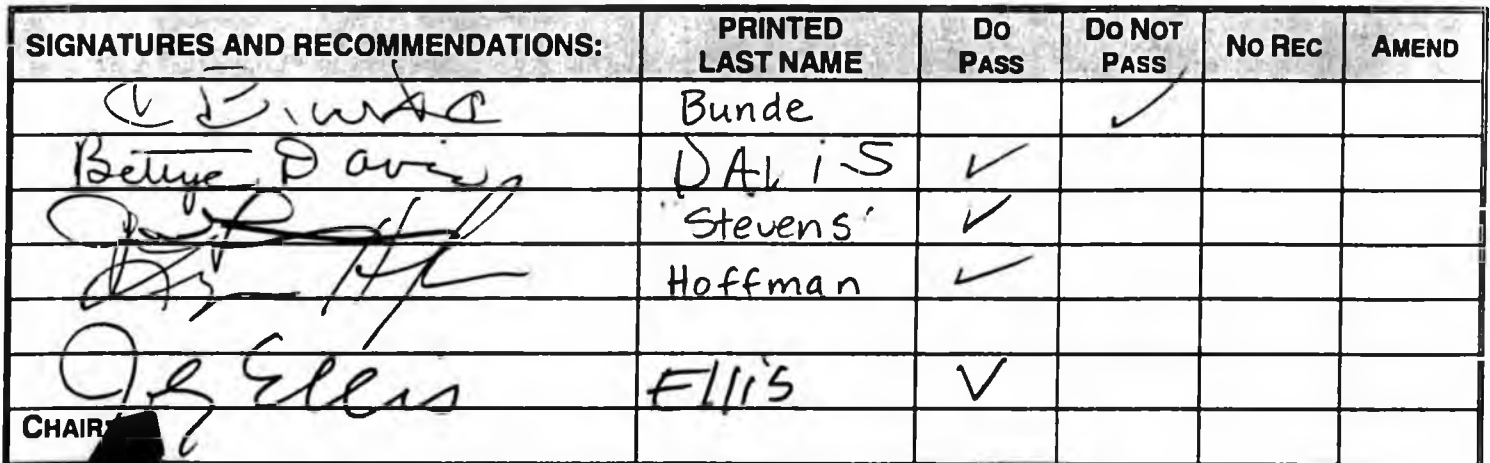 SIGNATURES AND RECOMMENDATIONS: PRINTED LAST NAME DO PASS DO NOT PASS NO REC AMEND
Bunde ✓
Bettye Davis DAVIS ✓
Stevens ✓
Hoffman ✓
Ellis Ellis ✓
CHAIR: